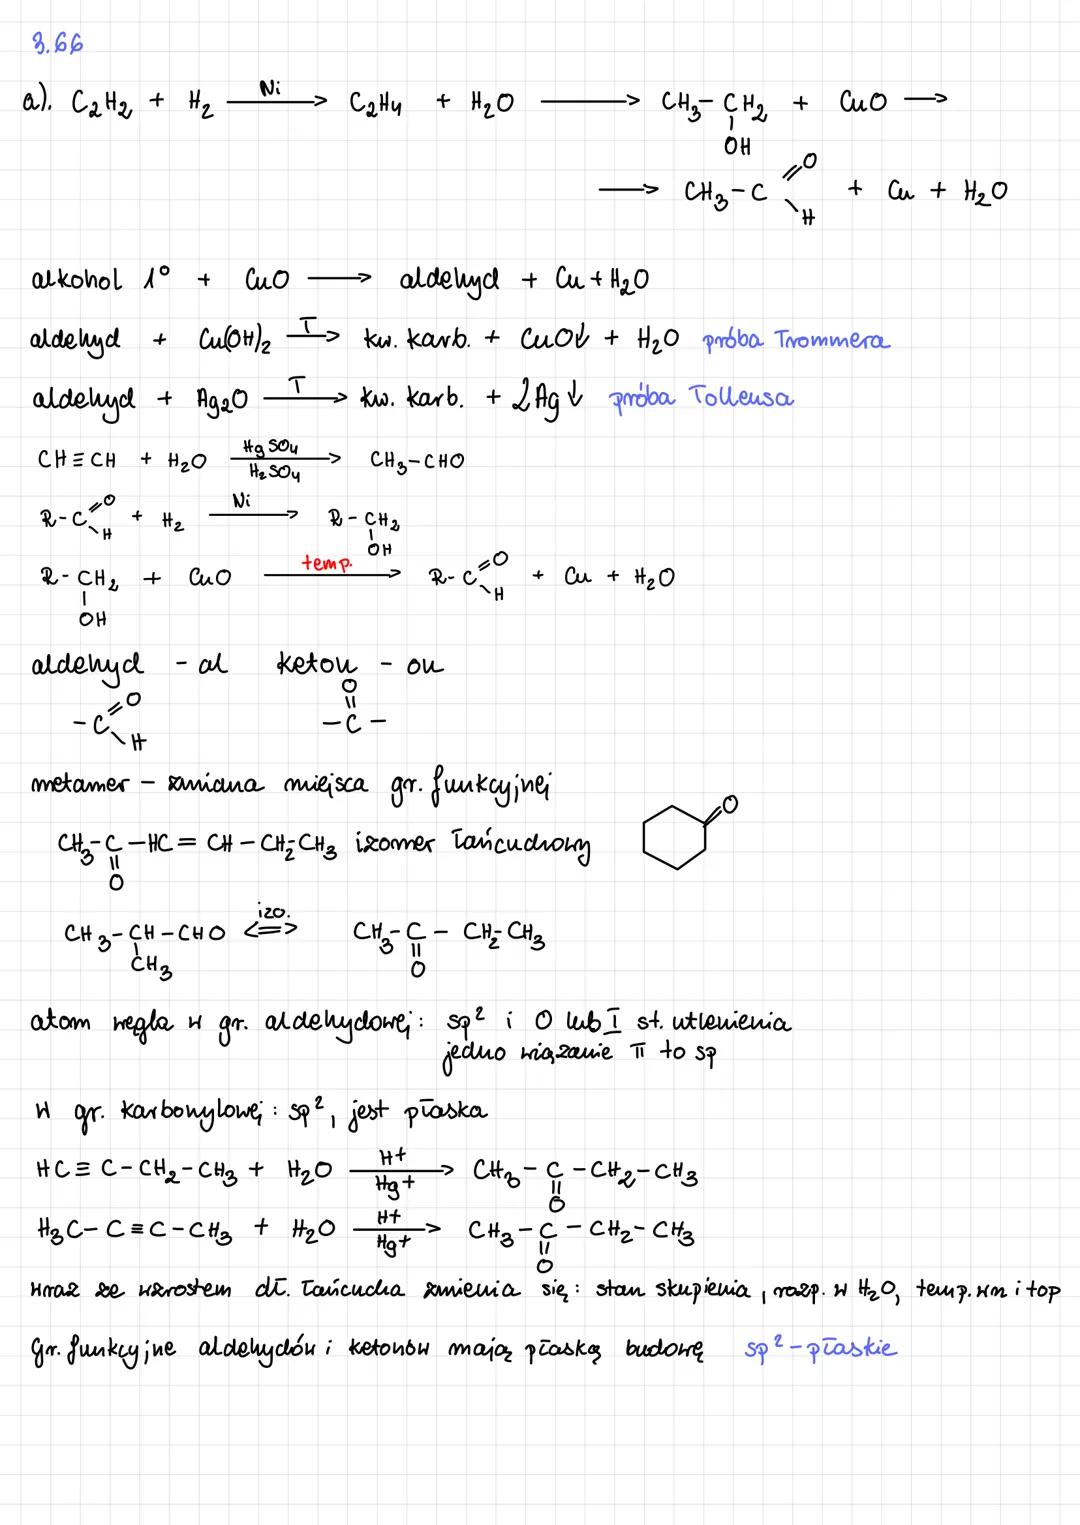 3.66
a). C₂H₂ + H₂ —Ni→ C₂H₄ + H₂O ⟶ CH₃-CH₂ + CuO ⟶
OH
⟶ CH₃-C=O + Cu + H₂O
H
alkohol 1° + CuO ⟶ aldehyd + Cu + H₂O
aldehyd + Cu(OH)₂ —T→ kw. karb. + CuO↓ + H₂O próba Trommera
aldehyd + Ag₂O —T→ kw. karb. + 2Ag↓ próba Tollensa
CH≡CH + H₂O —HgSO₄/H₂SO₄→ CH₃-CHO
R-C=O + H₂ —Ni→ R-CH₂
H OH
R-CH₂ + CuO —temp.→ R-C=O + Cu + H₂O
OH H
aldehyd - al keton - on
-C=O O
H -C-
metamer - zmiana miejsca gr. funkcyjnej
O
CH₃-C-HC=CH-CH₂-CH₃ izomer łańcuchowy
O
CH₃-CH-CHO <=izo.=> CH₃-C-CH₂-CH₃
CH₃ O
atom węgla w gr. aldehydowej: sp² i 0 lub I st. utlenienia
jedno wiązanie π to sp
W gr. karbonylowej: sp², jest płaska
HC≡C-CH₂-CH₃ + H₂O —H+/Hg+→ CH₃-C-CH₂-CH₃
O
H₃C-C≡C-CH₃ + H₂O —H+/Hg+→ CH₃-C-CH₂-CH₃
O
wraz ze wzrostem dł. łańcucha zmienia się: stan skupienia, rozp. w H₂O, temp. wrz i top
Gr. funkcyjne aldehydów i ketonów mają płaską budowę sp²-płaskie